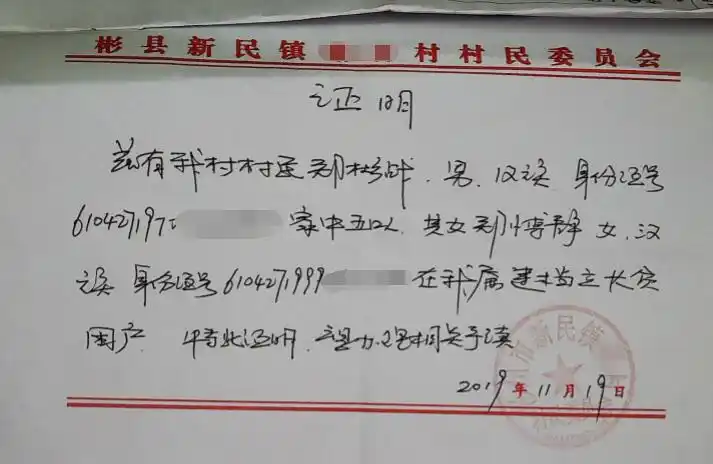 彬县新民镇 村村民委员会
证明
兹有我村村民郭 战、男、汉族 身份证号
610427197 家中五口人、其女郭博静 女、汉
族 身份证号6104271999 在我属建档立卡贫
困户 特此证明、望办理相关手续
2019年11月19日
市新民镇